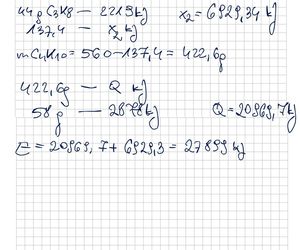 44g C3H8 — 2219kj x2 = 6929,34 kj
137,4 — x2 kj
mC4H10 = 560-137,4 = 422,6g
422,6g — Q kj
58g — 2878kj Q = 20969,7kj
E = 20969,7 + 6929,3 = 27899 kj